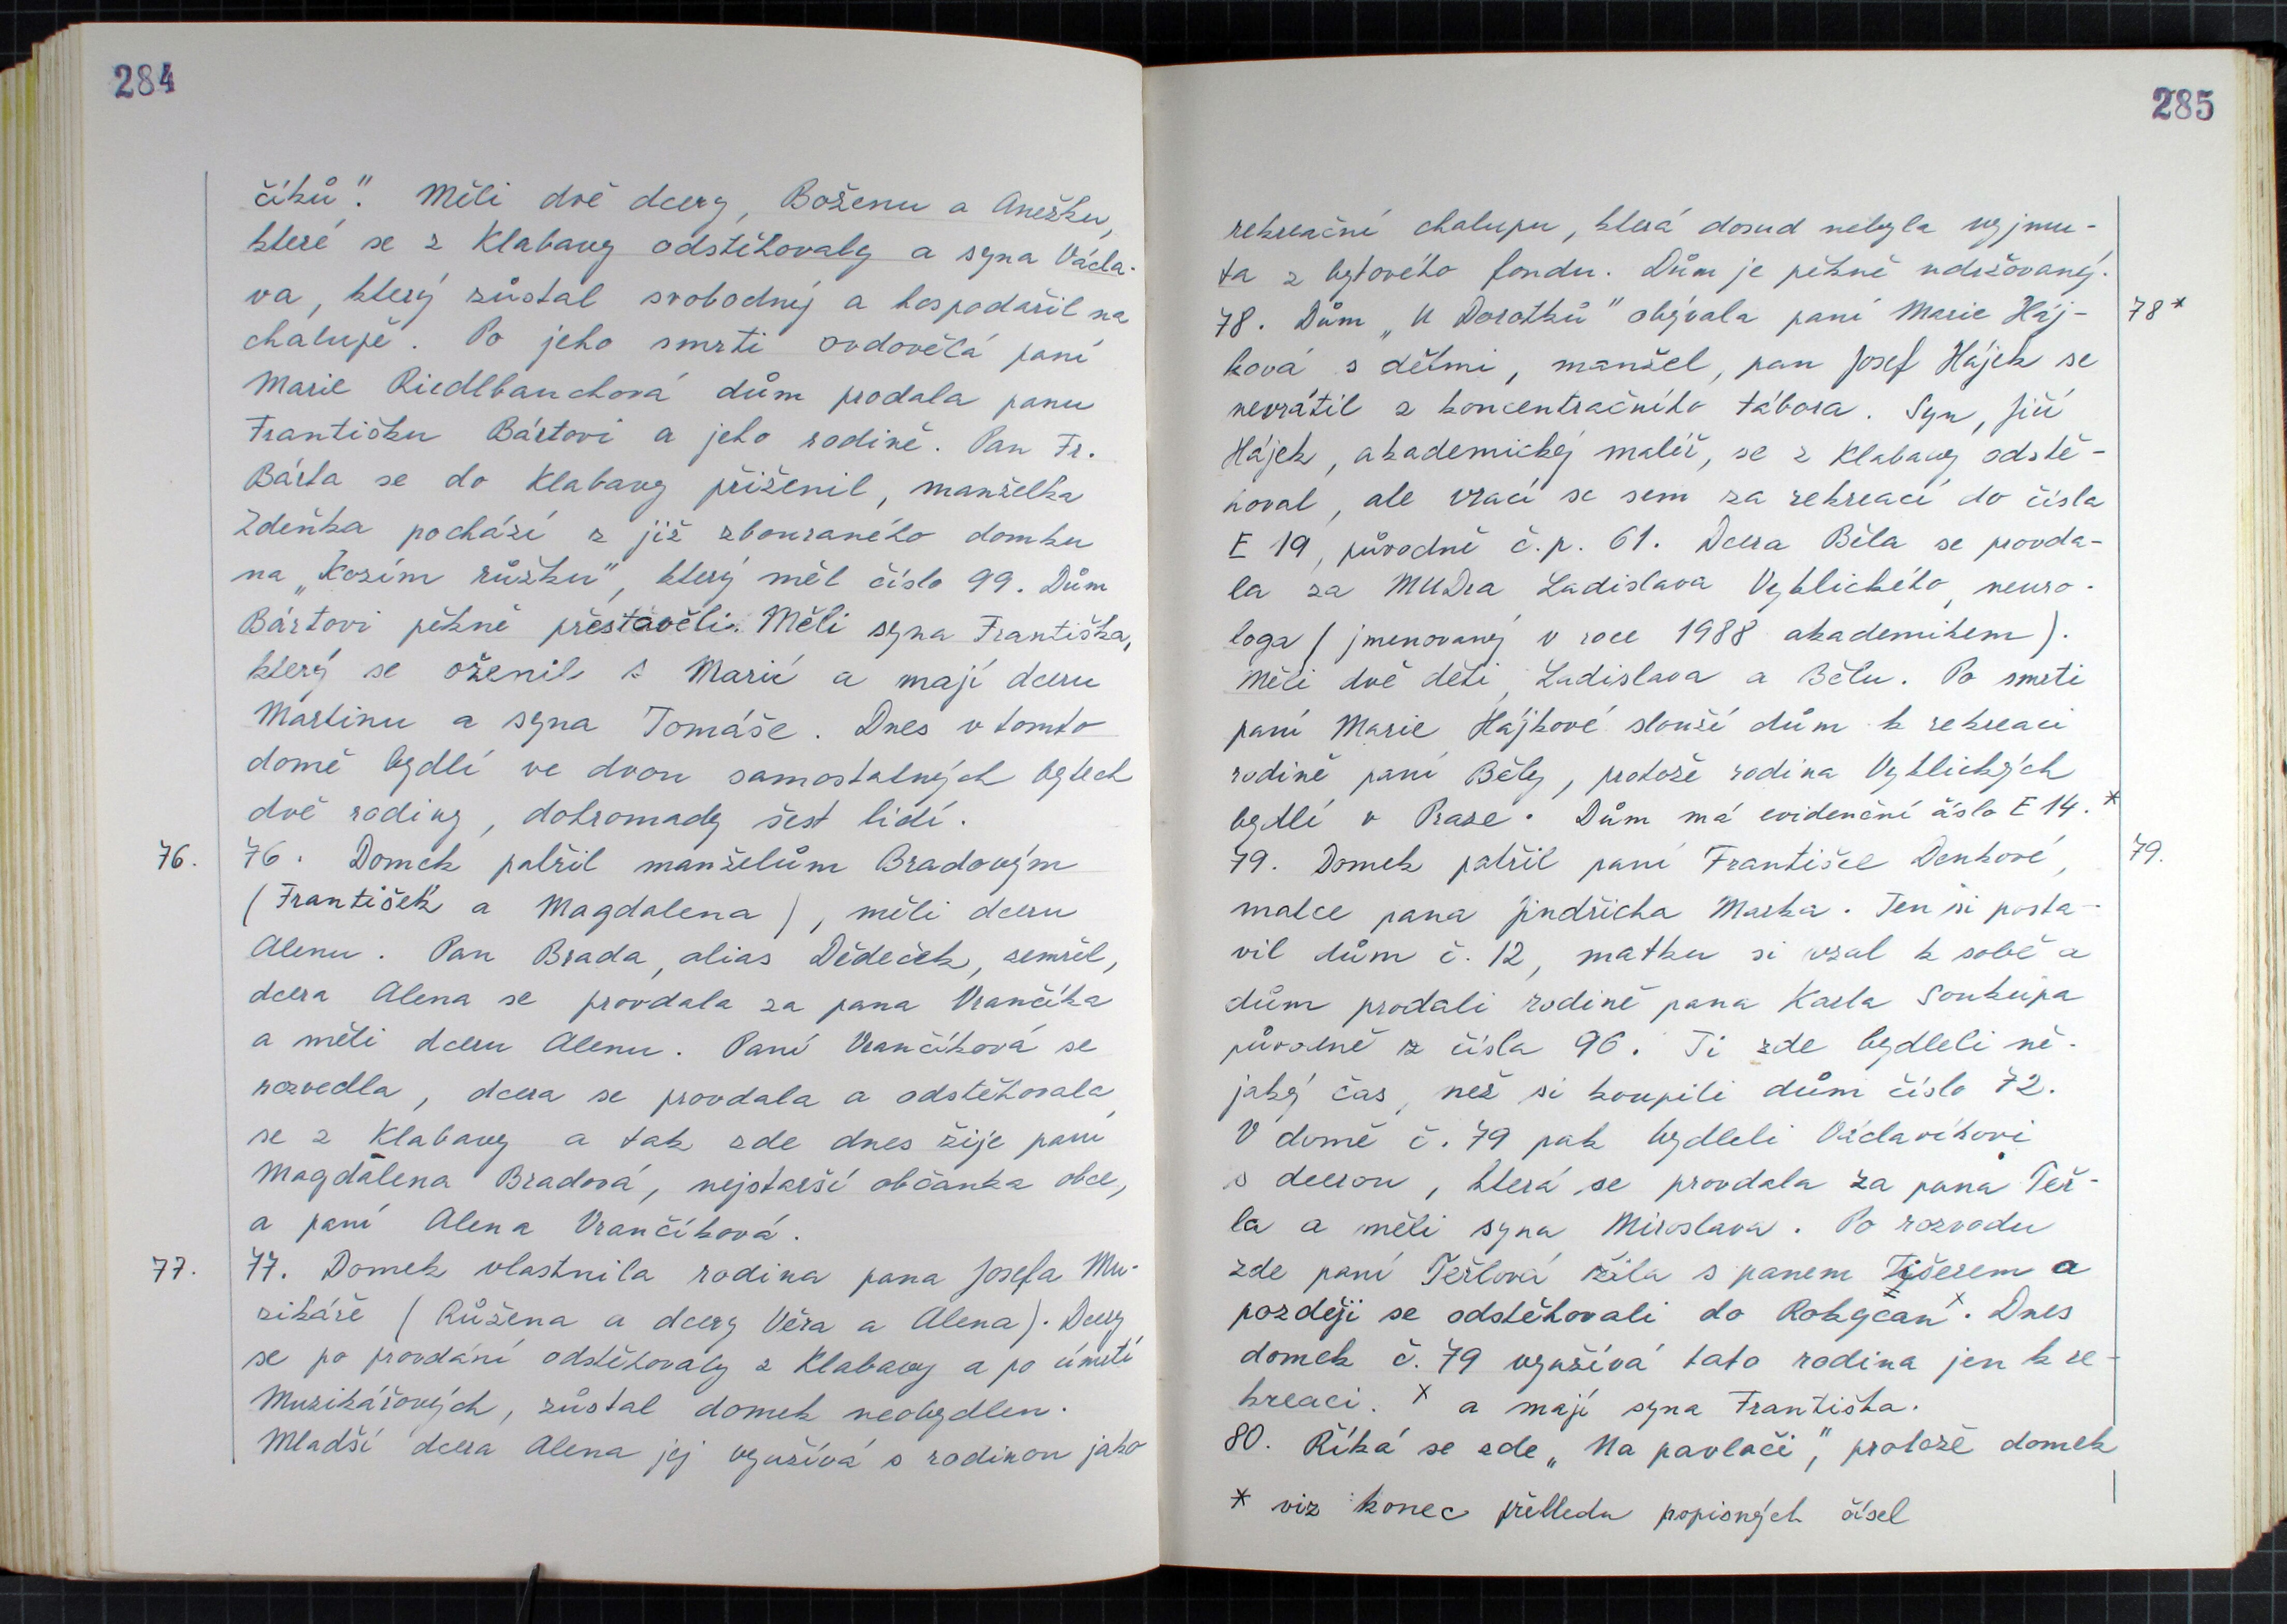 284
číků". Měli dvě dcery, Boženu a Anežku,
které se z Klabavy odstěhovaly a syna Václa-
va, který zůstal svobodný a hospodařil na
chalupě. Po jeho smrti ovdovělá paní
Marie Riedlbauchová dům prodala panu
Františku Bártovi a jeho rodině. Pan Fr.
Bárta se do Klabavy přiženil, manželka
Zdeňka pochází z již zbouraného domku
na „Kozím růžku", který měl číslo 99. Dům
Bártovi pěkně přestavěli. Měli syna Františka,
který se oženil s Marií a mají dceru
Martinu a syna Tomáše. Dnes v tomto
domě bydlí ve dvou samostatných bytech
dvě rodiny, dohromady šest lidí.
76. 76. Domek patřil manželům Bradovým
(František a Magdalena), měli dceru
Alenu. Pan Brada, alias Dědeček, zemřel,
dcera Alena se provdala za pana Vrančíka
a měli dceru Alenu. Paní Vrančíková se
rozvedla, dcera se provdala a odstěhovala
se z Klabavy a tak zde dnes žije paní
Magdaléna Bradová, nejstarší občanka obce,
a paní Alena Vrančíková.
77. 77. Domek vlastnila rodina pana Josefa Mu-
zikáře (Růžena a dcery Věra a Alena). Dcery
se po provdání odstěhovaly z Klabavy a po úmrtí
Muzikářových, zůstal domek neobydlen.
Mladší dcera Alena jej využívá s rodinou jako
285
rekreační chalupu, která dosud nebyla vyjmu-
ta z bytového fondu. Dům je pěkně udržovaný.
78. Dům „U Dorotků" obývala paní Marie Háj- 78*
ková s dětmi, manžel, pan Josef Hájek se
nevrátil z koncentračního tábora. Syn, Jiří
Hájek, akademický malíř, se z Klabavy odstě-
hoval, ale vrací se sem za rekreací do čísla
E 19, původně č.p. 61. Dcera Běla se provda-
la za MUDra Ladislava Vyklického, neuro-
loga (jmenovaný v roce 1988 akademikem).
Měli dvě děti, Ladislava a Bělu. Po smrti
paní Marie Hájkové slouží dům k rekreaci
rodině paní Běly, protože rodina Vyklických
bydlí v Praze. Dům má evidenční číslo E 14.*
79. Domek patřil paní Františce Denkové, 79.
matce pana Jindřicha Marka. Ten si posta-
vil dům č. 12, matku si vzal k sobě a
dům prodali rodině pana Karla Soukupa
původně z čísla 96. Ti zde bydleli ně-
jaký čas, než si koupili dům číslo 72.
V domě č. 79 pak bydleli Václavíkovi
s dcerou, která se provdala za pana Teř-
la a měli syna Miroslava. Po rozvodu
zde paní Teřlová žila s panem Tišerem a
později se odstěhovali do Rokycan x. Dnes
domek č. 79 využívá tato rodina jen k re-
kreaci. x a mají syna Františka.
80. Říká se zde „Na pavlači", protože domek
* viz konec přehledu popisných čísel